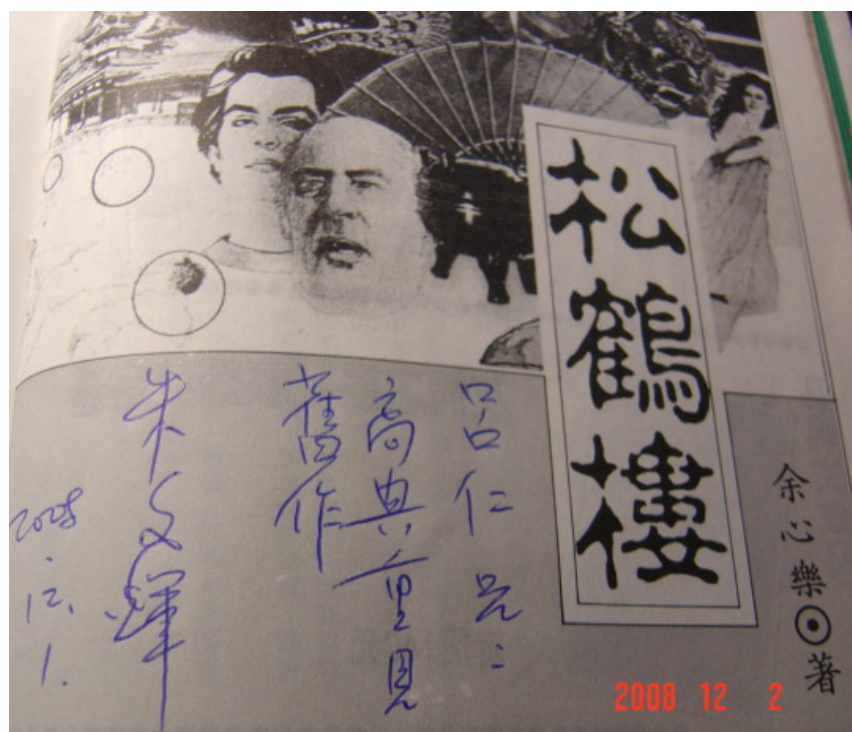 松鶴樓
余心樂⊙著
呂仁兄：
高興重見
舊作
朱文輝
2008.12.1.
2008 12 2